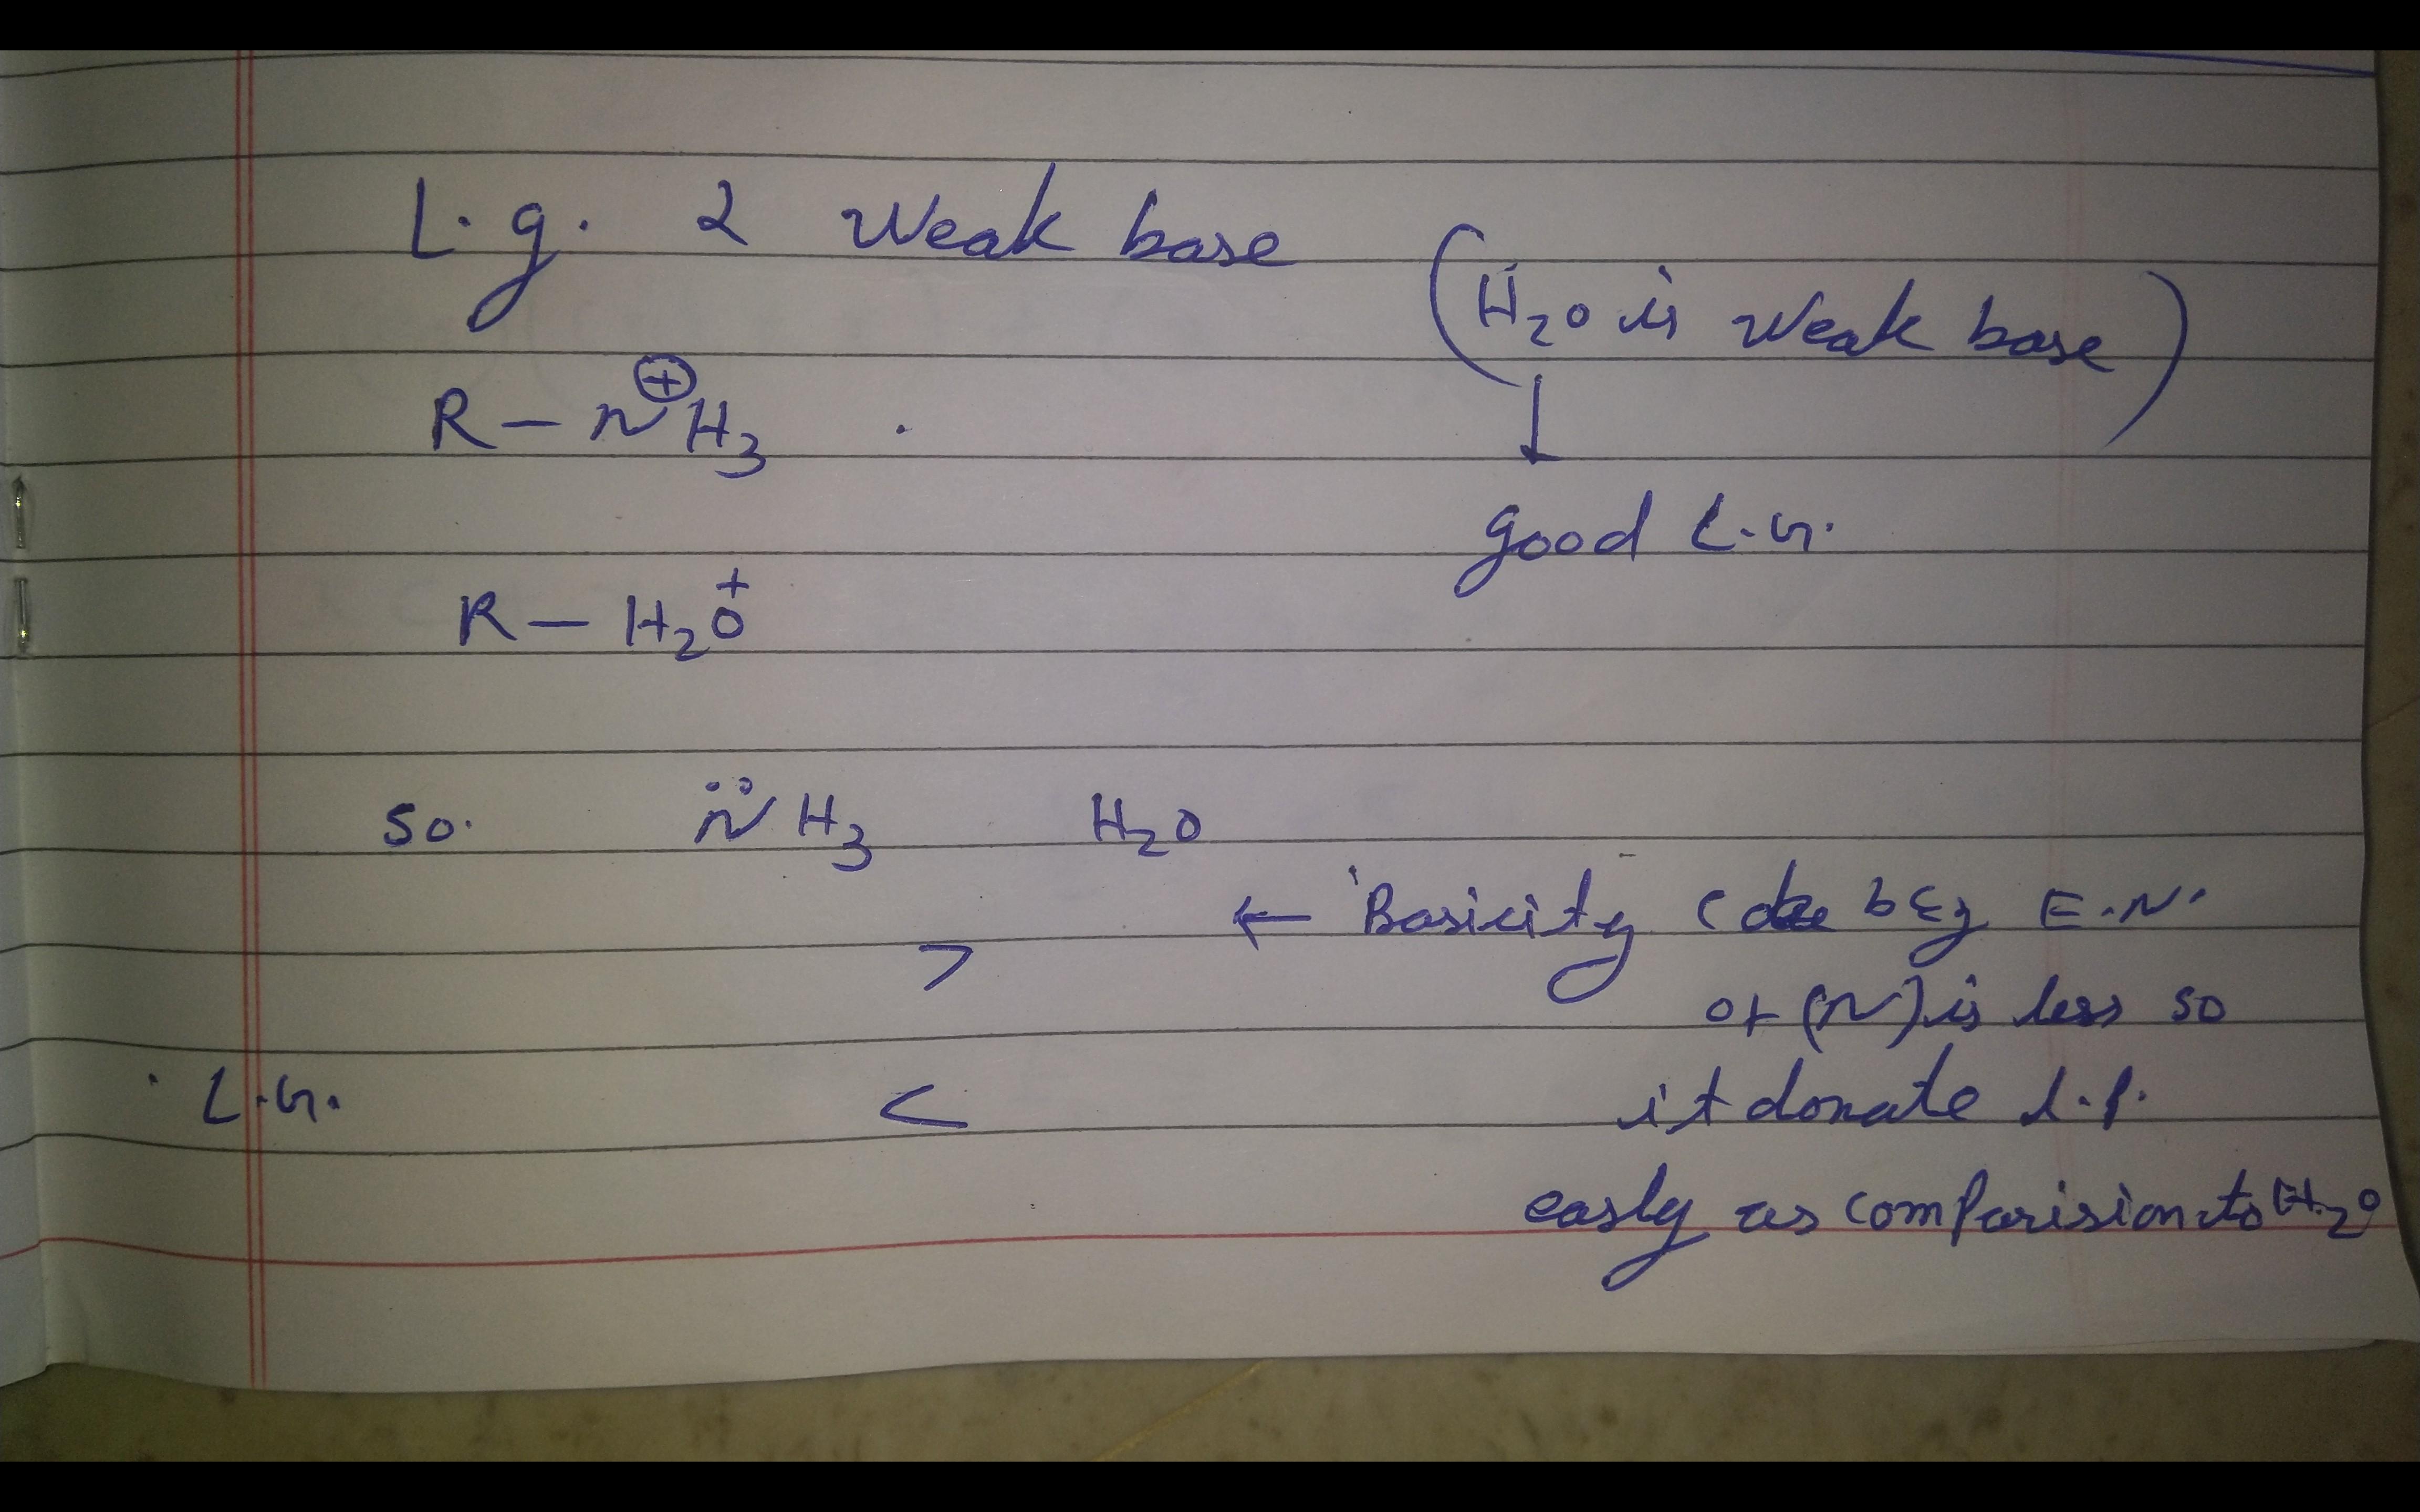 L.g. α Weak base
(H₂O is Weak base)
↓
R – N⊕H₃
good L.G.
R – H₂O⁺
so. N̈H₃ H₂O
> ← Basicity (
bcz E.N.
of (N) is less so
L.G. < it donate l.p.
easly as comparision to H₂O